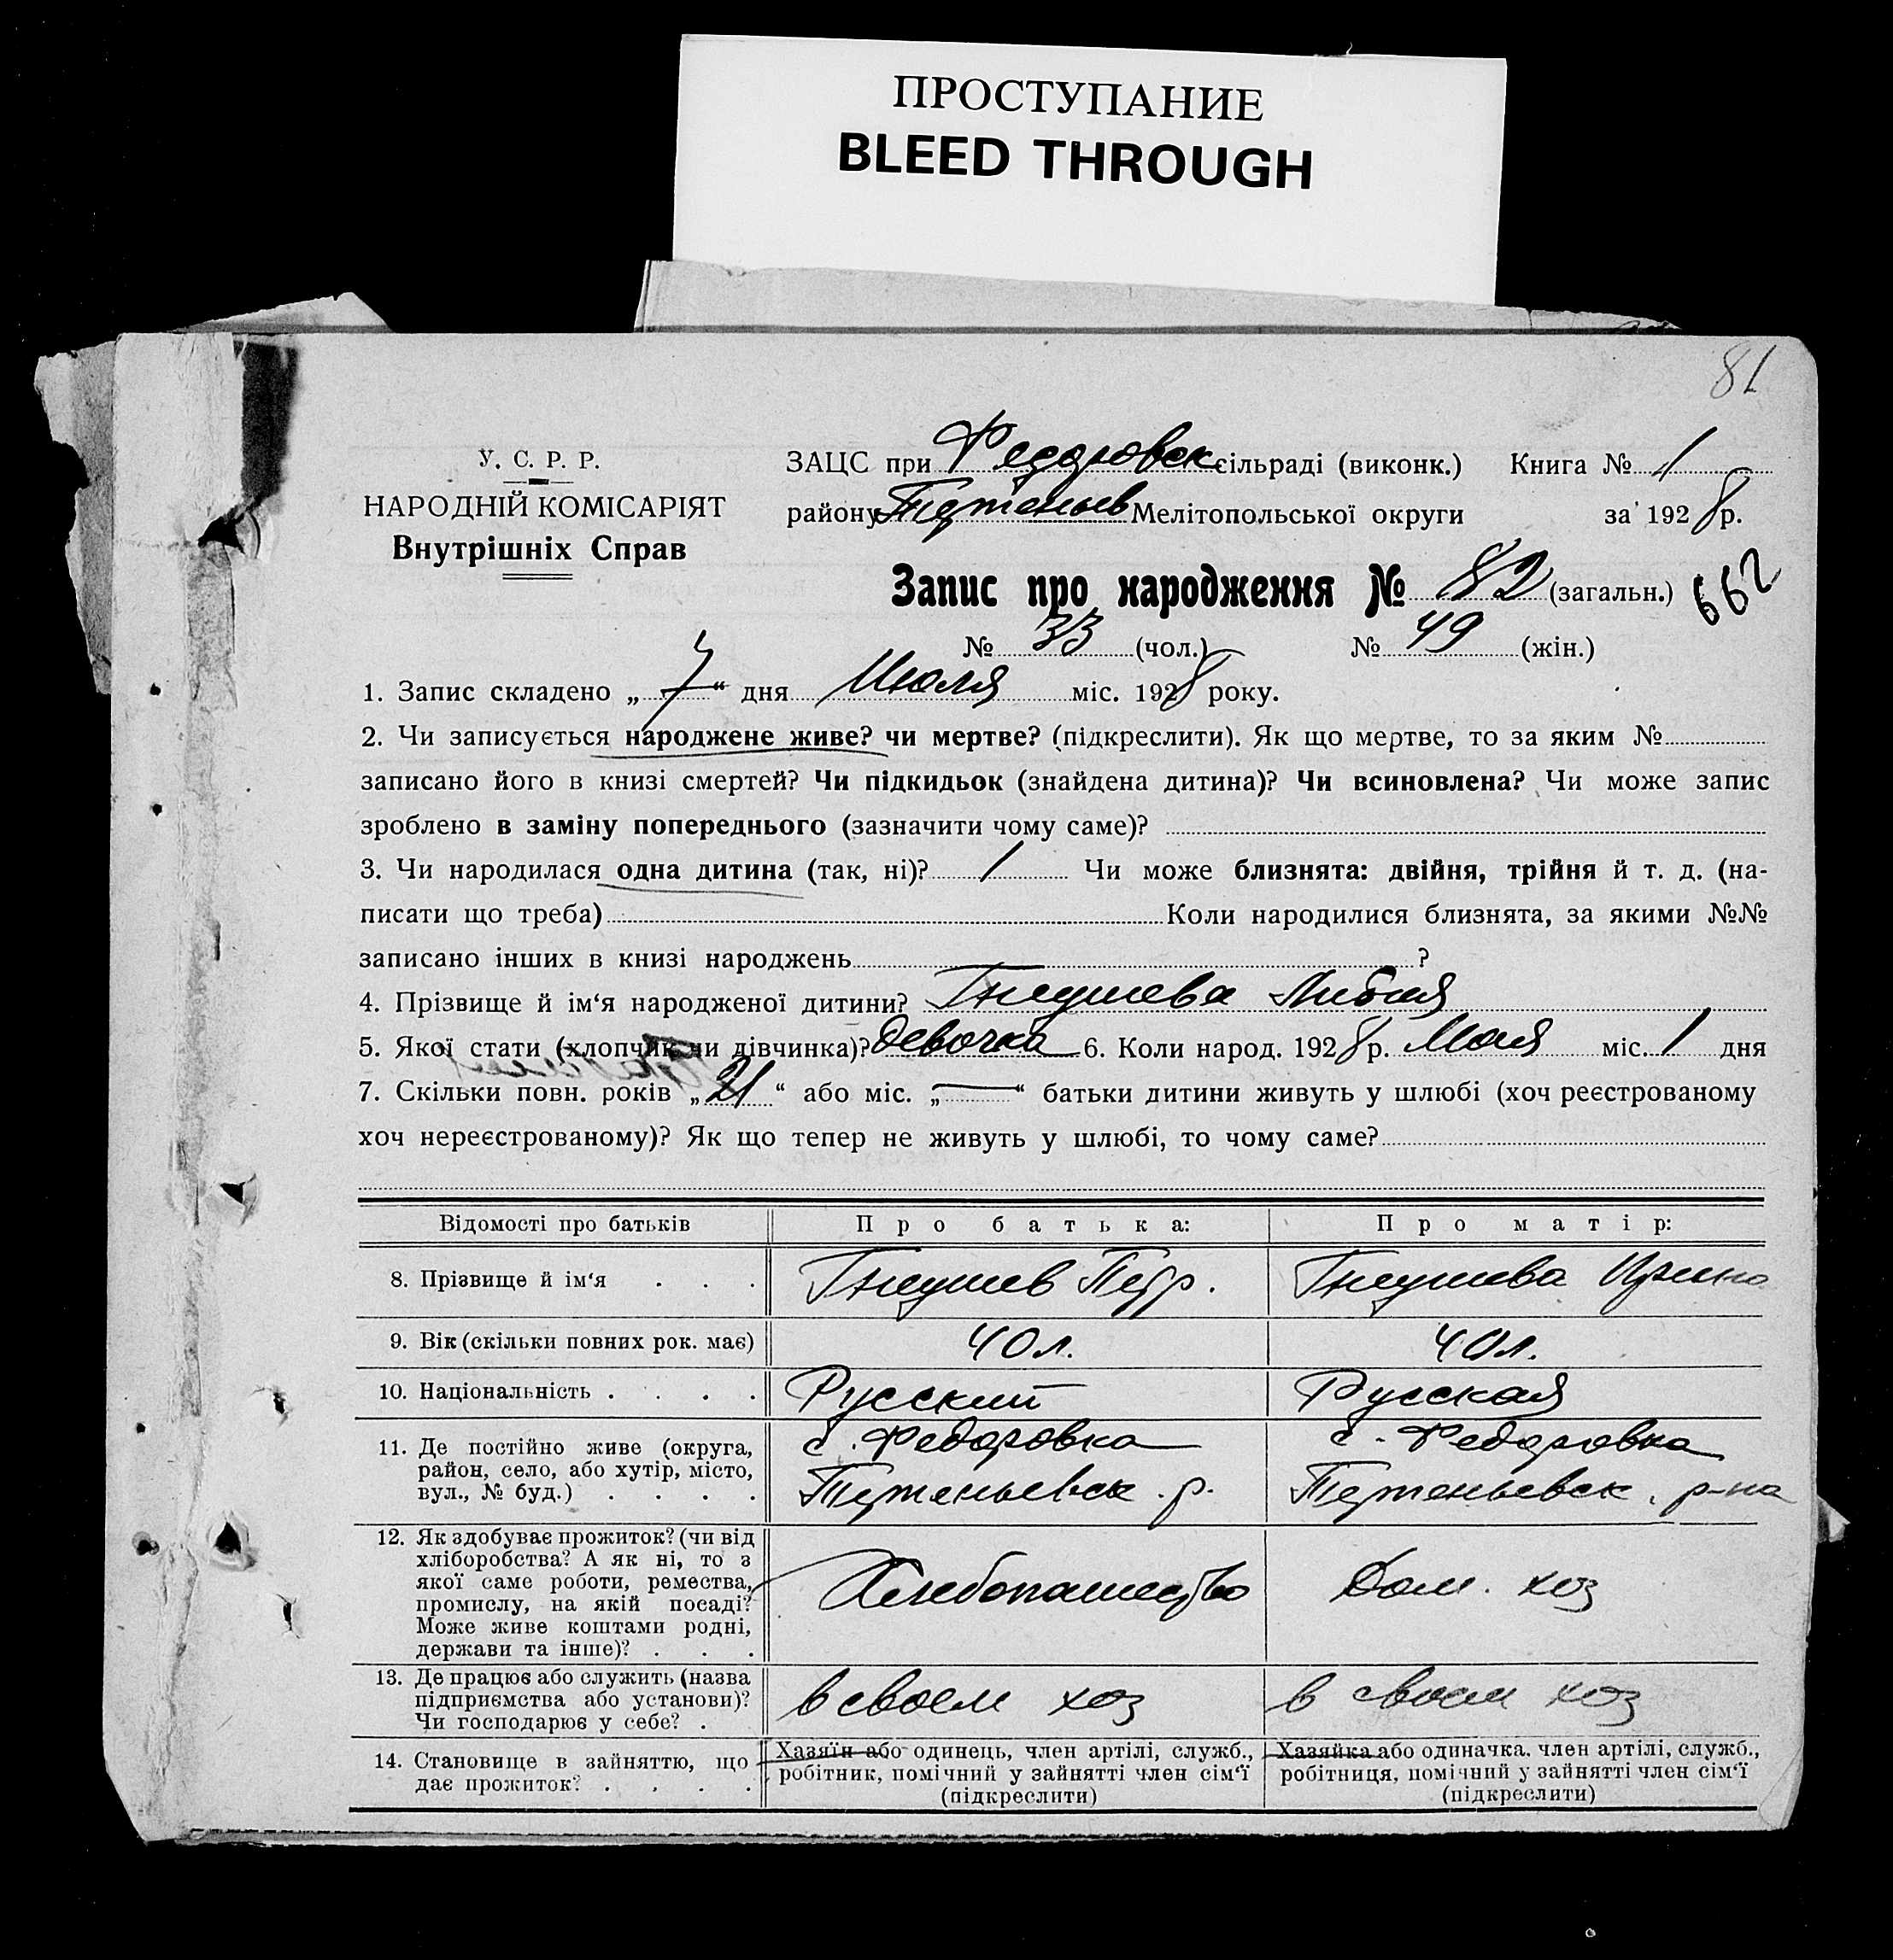 ПРОСТУПАНИЕ
BLEED THROUGH
81
У. С. Р. Р.
НАРОДНІЙ КОМІСАРІЯТ
Внутрішніх Справ
ЗАЦС при Федоровск сільраді (виконк.) Книга № 1
району Мелітопольської округи за 1928 р.
Запис про народження № 82 (загальн.) 662
№ 33 (чол.) № 49 (жін.)
1. Запис складено „7“ дня Июля міс. 1928 року.
2. Чи записується народжене живе? чи мертве? (підкреслити). Як що мертве, то за яким №
записано його в книзі смертей? Чи підкидьок (знайдена дитина)? Чи всиновлена? Чи може запис
зроблено в заміну попереднього (зазначити чому саме)?
3. Чи народилася одна дитина (так, ні)? 1 Чи може близнята: двійня, трійня й т. д. (на-
писати що треба) Коли народилися близнята, за якими №№
записано інших в книзі народжень ?
4. Прізвище й ім‘я народженої дитини? Гнеушева
5. Якої стати (хлопчик чи дівчинка)? девочка 6. Коли народ. 1928 р. міс. 1 дня
7. Скільки повн. років „21“ або міс. „—“ батьки дитини живуть у шлюбі (хоч реєстрованому
хоч нереєстрованому)? Як що тепер не живуть у шлюбі, то чому саме?
Відомості про батьків Про батька: Про матір:
8. Прізвище й ім‘я . . . Гнеушев Гнеушева Ирина
9. Вік (скільки повних рок. має) 40 л. 40 л.
10. Національність . . . . Русский Русская
11. Де постійно живе (округа,
район, село, або хутір, місто,
вул., № буд.) . . . .
с. Федоровка
р.
с. Федоровка
р-на
12. Як здобуває прожиток? (чи від
хліборобства? А як ні, то з
якої саме роботи, ремества,
промислу, на якій посаді?
Може живе коштами родні,
держави та інше)? . . .
Хлебопашество
Дом. хоз
13. Де працює або служить (назва
підприємства або установи)?
Чи господарює у себе? .
в своем хоз
в своем хоз
14. Становище в зайняттю, що
дає прожиток? . . . .
Хазяїн або одинець, член артілі, служб.,
робітник, помічний у зайнятті член сім‘ї
(підкреслити)
Хазяйка або одиначка. член артілі, служб.,
робітниця, помічний у зайнятті член сім‘ї
(підкреслити)